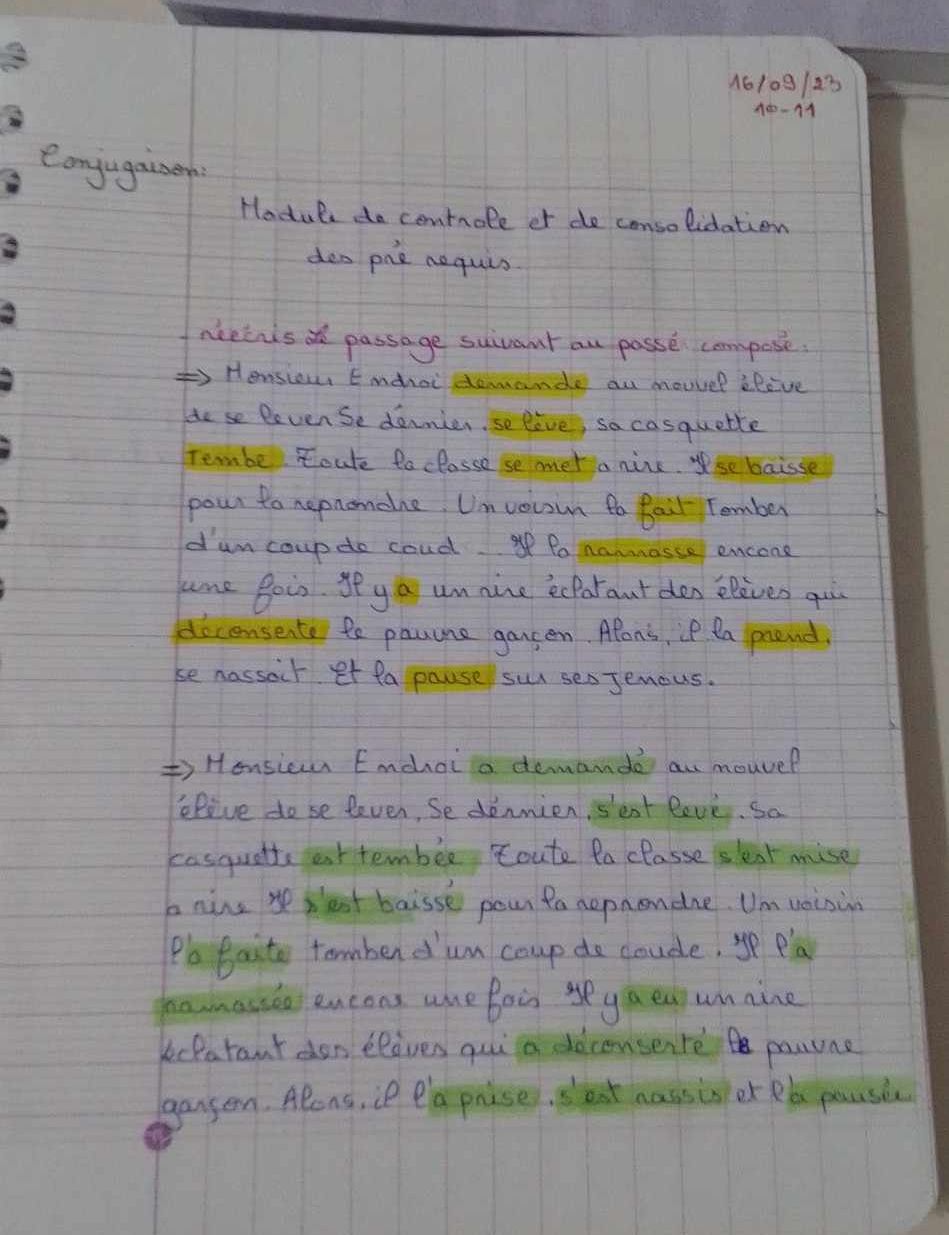 16/09/23
10-11
Conjugaison:
Module de controle et de consolidation
des pré requis.
- réecris le passage suivant au passé composé.
=> Monsieur Endroi demande au nouvel élève
de se lever Se dérnier, se lève, sa casquette
Tembe. Toute la classe se met a rire. Il se baisse
pour la reprondre. Un voisin la fait Tomber
d'un coup de coud... Il la rammasse encore
une fois. Il y a un rire éclatant des élèves qui
déconserte le pauvre garçon. Alors, il la prend,
se rassoit. Et la pause sur ses Jenous.
=> Monsieur Endroi a demandé au nouvel
élève de se lever, Se dérnier, s'est levé. Sa
casquette est tembée. Toute la classe s'est mise
a rire Il s'est baissé pour la reprondre. Un voisin
l'a faite tomber d'un coup de coude. Il l'a
ramassée encore une fois Il y a eu un rire
éclatant des élèves qui a déconserté le pauvre
garçon. Alors, il l'a prise, s'est rassis et l'a pausée